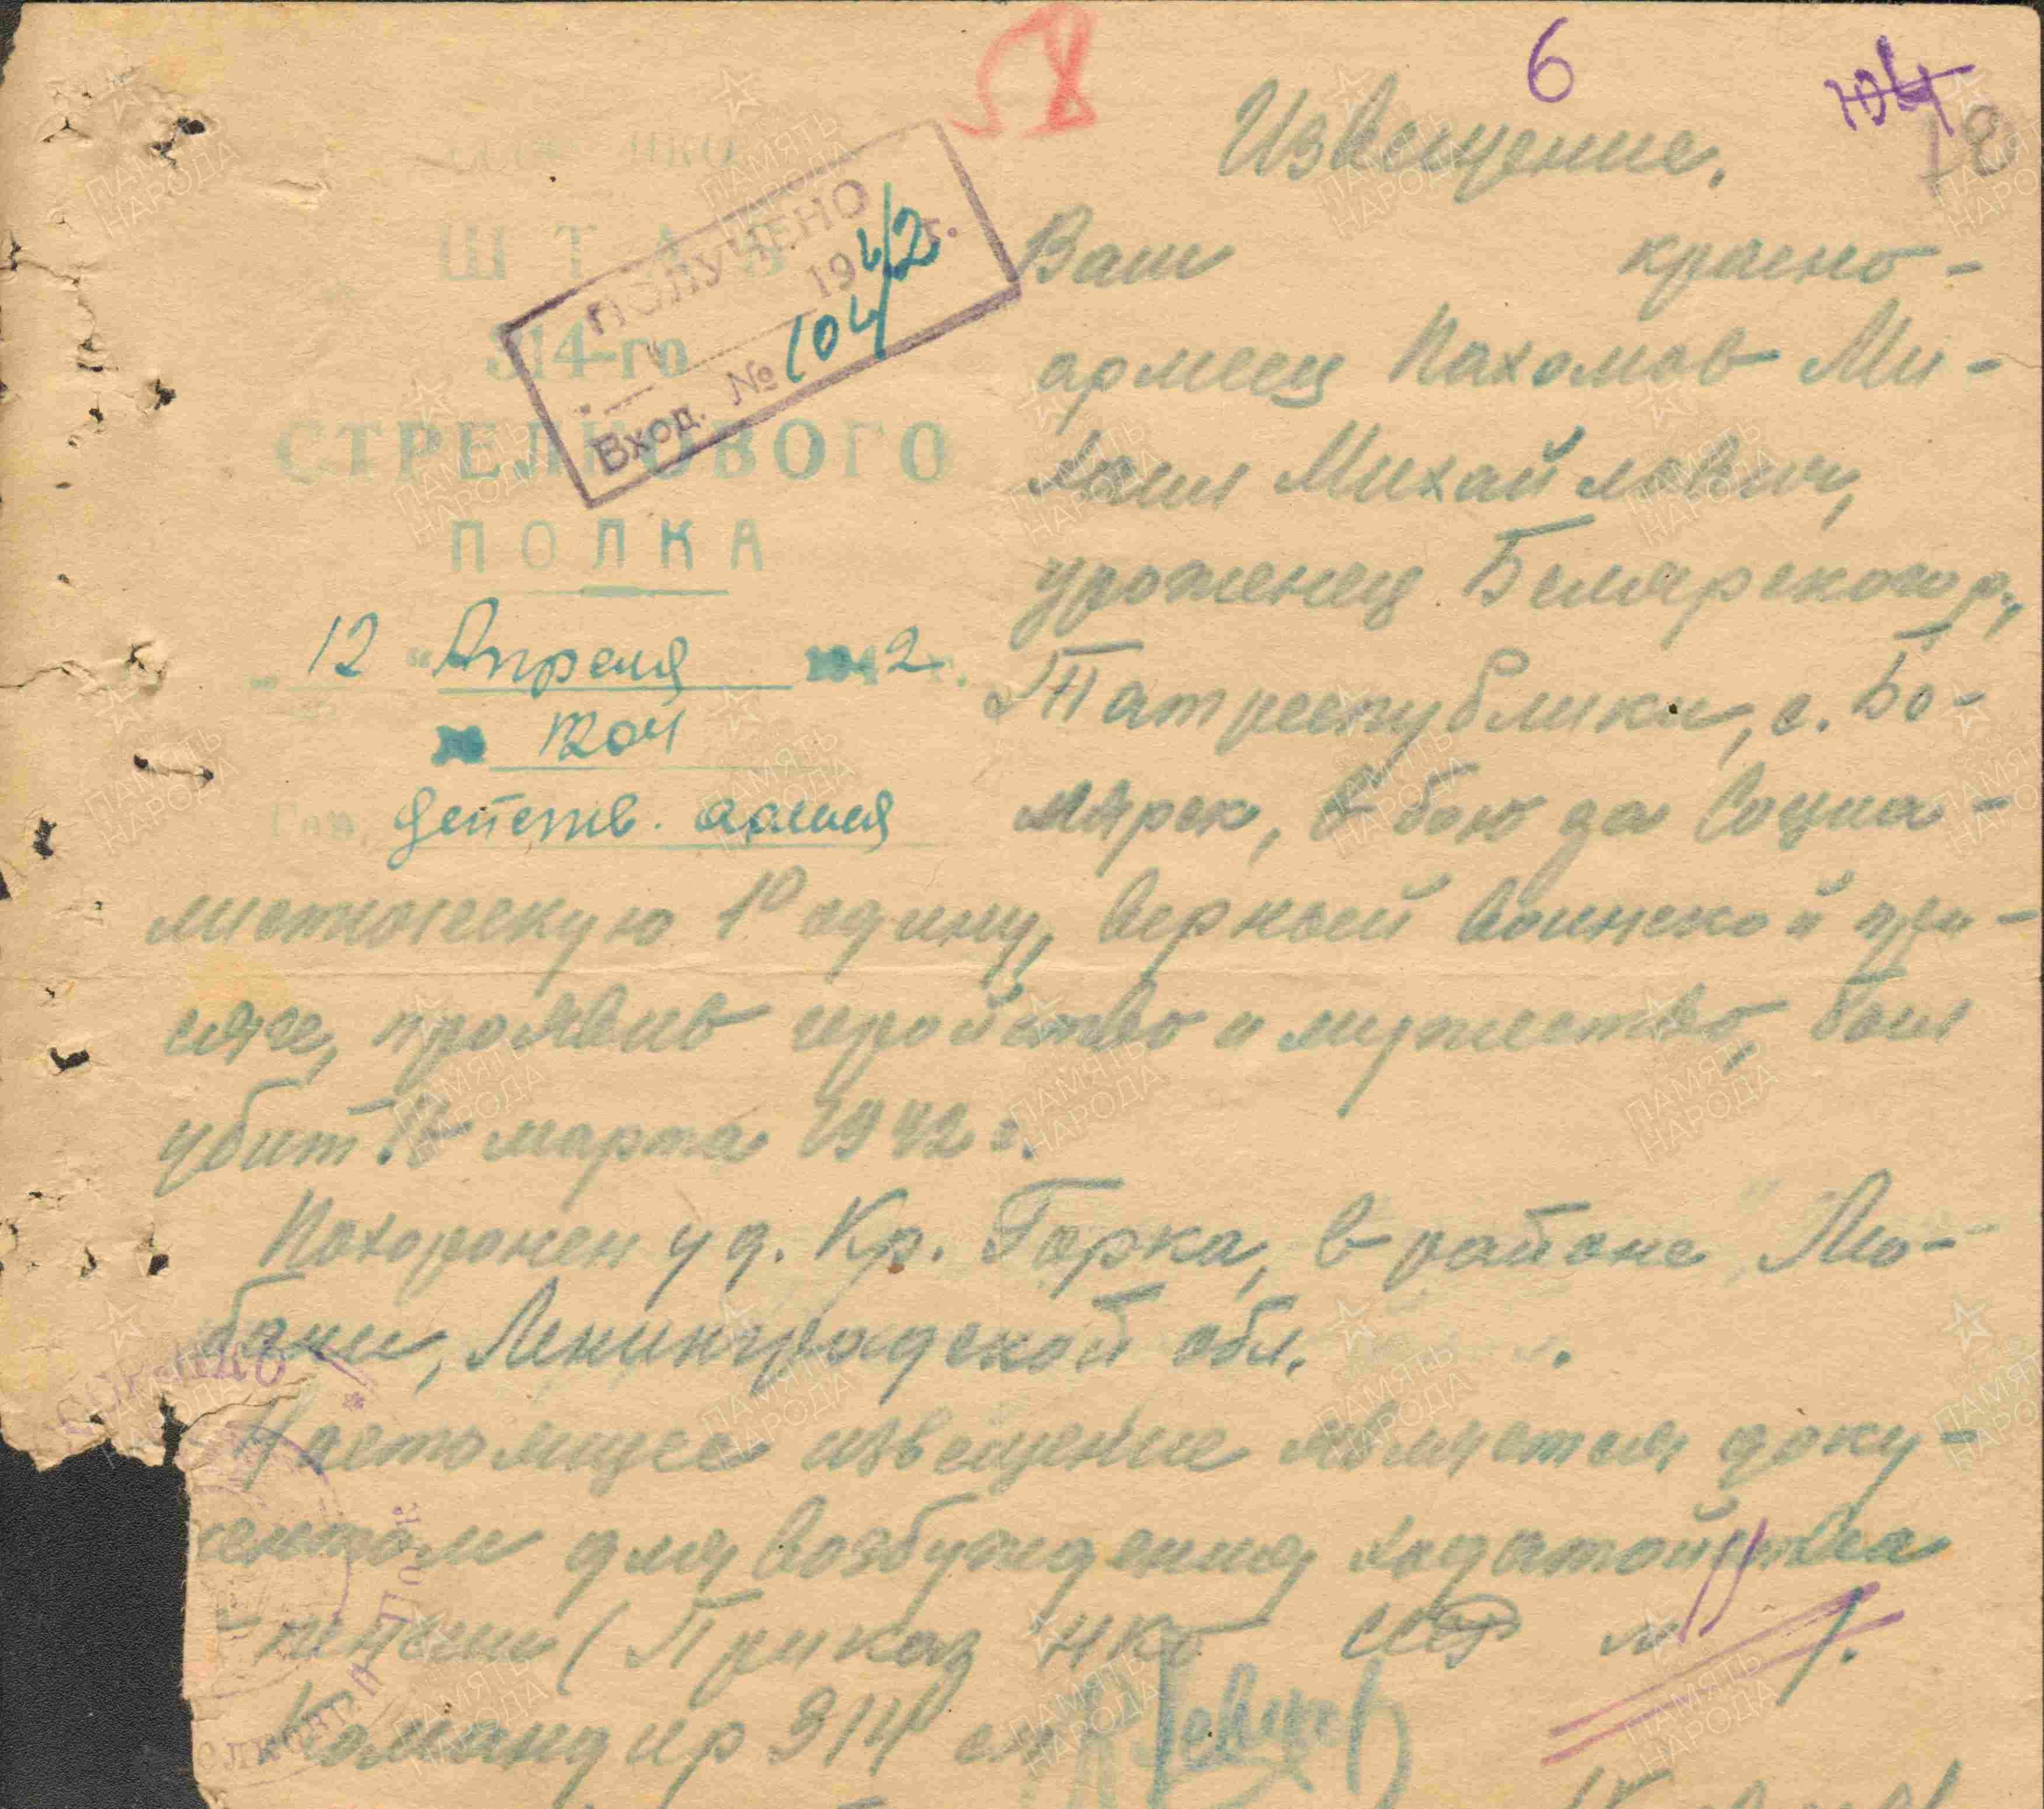 58
6
104
18
Извещение.
ШТАБ
314-го
СТРЕЛКОВОГО
ПОЛКА
„12" Апреля 1942 г.
№ 1204
Гор. действ. армия
ПОЛУЧЕНО
1942 г.
Вход. № 104
Ваш красно-
армеец Пахомов Ми-
хаил Михайлович,
уроженец Белярского р.,
Татреспублики, с. Бо-
лярск, в бою за Социа-
листическую Родину, верный воинской при-
сяге, проявив геройство и мужество, был
убит марта 1942 г.
Похоронен у д. Кр. Горка, в районе Лю-
бани, Ленинградской обл.
Настоящее извещение является доку-
ментом для возбуждения ходатайства
пенсии (Приказ НКО СССР №
Командир 314 сп